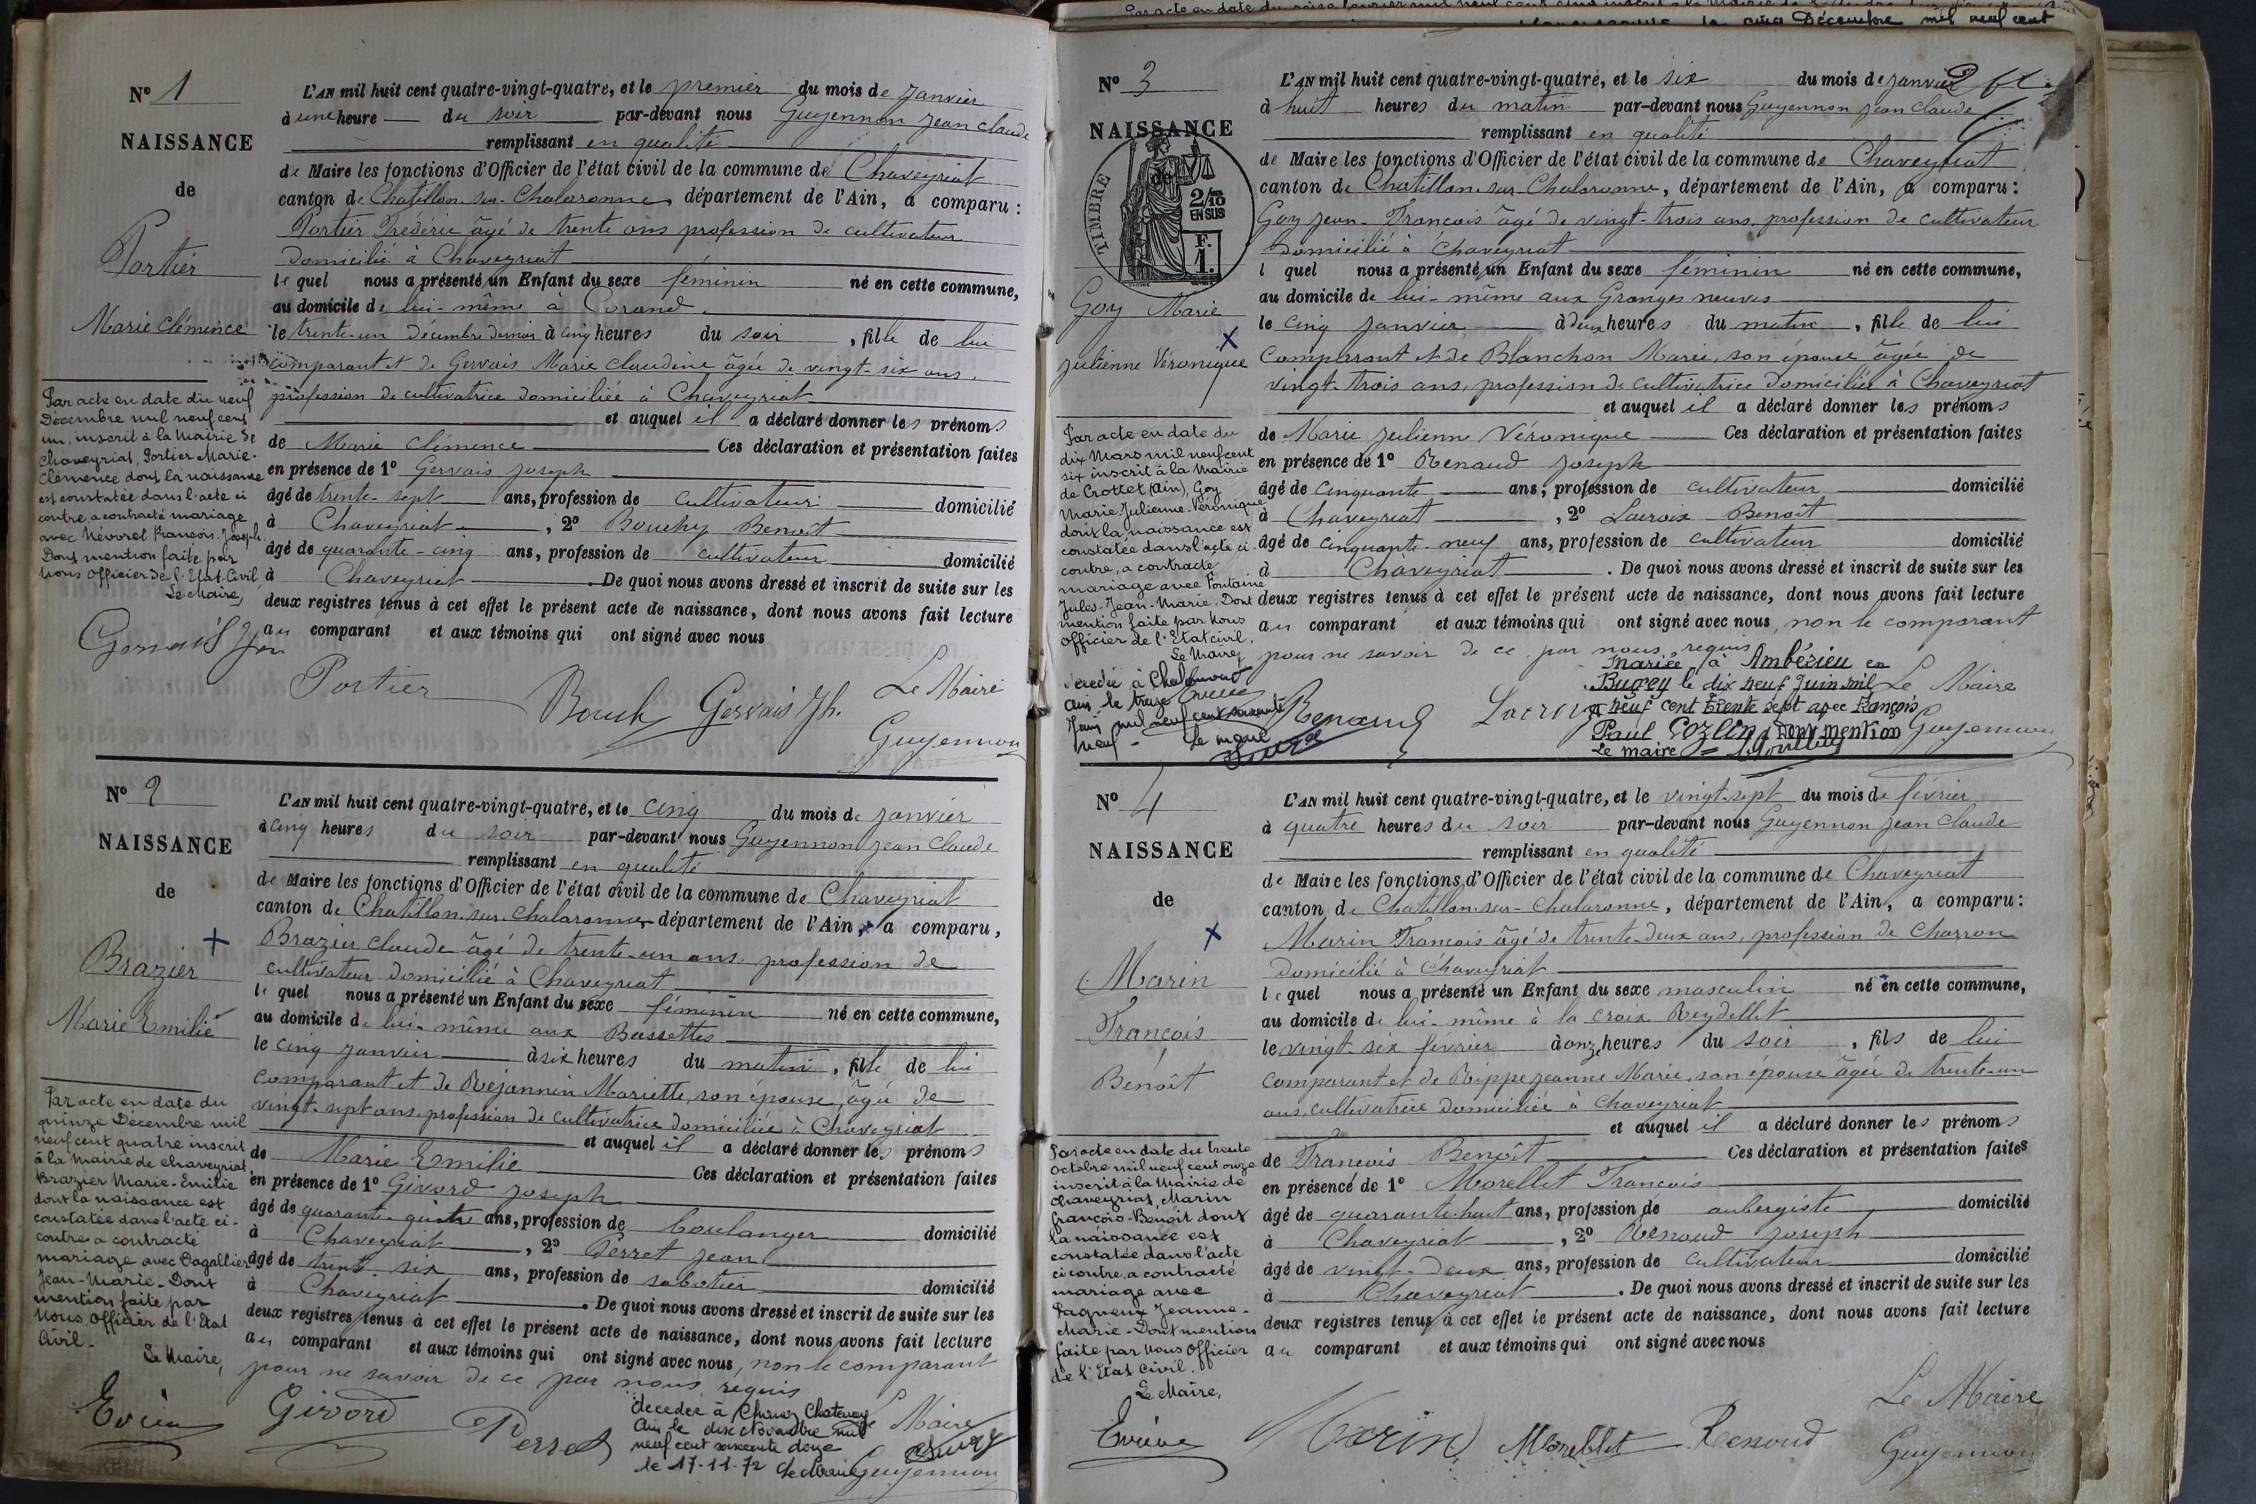 N° 1
NAISSANCE
de
Portier
Marie Clémence
L'AN mil huit cent quatre-vingt-quatre, et le premier du mois de Janvier
à une heure du soir par-devant nous Guyennon Jean Claude
remplissant en qualité
de Maire les fonctions d'Officier de l'état civil de la commune de Chaveyriat
canton de Chatillon-sur-Chalaronne, département de l'Ain, a comparu :
Portier Frédéric âgé de trente ans profession de cultivateur
domicilié à Chaveyriat
lequel nous a présenté un Enfant du sexe féminin né en cette commune,
au domicile de lui-même à Corand
le trente-un Décembre dernier à cinq heures du soir, fille de lui
comparant et de Gervais Marie Claudine âgée de vingt-six ans,
profession de cultivatrice domiciliée à Chaveyriat
et auquel il a déclaré donner les prénoms
de Marie Clémence Ces déclaration et présentation faites
en présence de 1° Gervais Joseph
âgé de trente-sept ans, profession de cultivateur domicilié
à Chaveyriat, 2° Bouchy Benoît
âgé de quarante-cinq ans, profession de cultivateur domicilié
à Chaveyriat. De quoi nous avons dressé et inscrit de suite sur les
deux registres tenus à cet effet le présent acte de naissance, dont nous avons fait lecture
au comparant et aux témoins qui ont signé avec nous
Par acte en date du neuf
Décembre mil neuf cent
un, inscrit à la Mairie de
Chaveyriat, Portier Marie-
Clémence dont la naissance
est constatée dans l'acte ci
contre, a contracté mariage
avec Névoret François-Joseph.
Dont mention faite par
Nous Officier de l'Etat-Civil
Le Maire,
Portier Gervais Jh. Le Maire
Guyennon
N° 2
NAISSANCE
de
Brazier
Marie Emilie
L'AN mil huit cent quatre-vingt-quatre, et le cinq du mois de Janvier
à cinq heures du soir par-devant nous Guyennon Jean Claude
remplissant en qualité
de Maire les fonctions d'Officier de l'état civil de la commune de Chaveyriat
canton de Chatillon-sur-Chalaronne, département de l'Ain, a comparu,
Brazier Claude âgé de trente-un ans, profession de
cultivateur domicilié à Chaveyriat
lequel nous a présenté un Enfant du sexe féminin né en cette commune,
au domicile de lui-même aux Bassettes
le cinq Janvier à six heures du matin, fille de lui
comparant et de Réjannin Mariette, son épouse, âgée de
vingt-sept ans, profession de cultivatrice domiciliée à Chaveyriat
et auquel il a déclaré donner les prénoms
de Marie Emilie Ces déclaration et présentation faites
en présence de 1° Givord Joseph
âgé de quarante-quatre ans, profession de boulanger domicilié
à Chaveyriat, 2° Perret Jean
âgé de trente-six ans, profession de sabotier domicilié
à Chaveyriat. De quoi nous avons dressé et inscrit de suite sur les
deux registres tenus à cet effet le présent acte de naissance, dont nous avons fait lecture
au comparant et aux témoins qui ont signé avec nous, non le comparant
pour ne savoir de ce par nous requis
Par acte en date du
quinze Décembre mil
neuf cent quatre inscrit
à la Mairie de Chaveyriat,
Brazier Marie-Emilie
dont la naissance est
constatée dans l'acte ci-
contre a contracté
mariage avec Pagallier
Jean-Marie. Dont
mention faite par
Nous Officier de l'Etat
Civil.
Le Maire,
Givord Perret Le Maire
Guyennon
décédée à
Ain le dix Novembre mil
neuf cent soixante douze
le 17-11-72 Le Maire
N° 3
NAISSANCE
de
TIMBRE
2/10
EN SUS
F.
1.
Goy Marie
Julienne Véronique
L'AN mil huit cent quatre-vingt-quatre, et le six du mois de Janvier
à huit heures du matin par-devant nous Guyennon Jean Claude
remplissant en qualité
de Maire les fonctions d'Officier de l'état civil de la commune de Chaveyriat
canton de Chatillon-sur-Chalaronne, département de l'Ain, a comparu :
Goy Jean-François âgé de vingt-trois ans, profession de cultivateur
domicilié à Chaveyriat
l quel nous a présenté un Enfant du sexe féminin né en cette commune,
au domicile de lui-même aux Granges neuves
le cinq Janvier à deux heures du matin, fille de lui
comparant et de Blanchon Marie, son épouse âgée de
vingt-trois ans, profession de cultivatrice domiciliée à Chaveyriat
et auquel il a déclaré donner les prénoms
de Marie Julienne Véronique Ces déclaration et présentation faites
en présence de 1° Renaud Joseph
âgé de cinquante ans, profession de cultivateur domicilié
à Chaveyriat, 2° Lacroix Benoît
âgé de cinquante-neuf ans, profession de cultivateur domicilié
à Chaveyriat. De quoi nous avons dressé et inscrit de suite sur les
deux registres tenus à cet effet le présent acte de naissance, dont nous avons fait lecture
au comparant et aux témoins qui ont signé avec nous, non le comparant
pour ne savoir de ce par nous requis
Par acte en date du
dix Mars mil neuf cent
six inscrit à la Mairie
de Crottet (Ain), Goy
Marie-Julienne-Véronique
dont la naissance est
constatée dans l'acte ci
contre, a contracté
mariage avec Fontaine
Jules-Jean-Marie. Dont
mention faite par Nous
Officier de l'Etat civil.
Le Maire,
Mariée à Ambérieu en
Bugey le dix neuf Juin mil
neuf cent trente sept avec François
Paul Cozlin Dont mention
Le maire
Le Maire
Guyennon
Renaud Lacroix
N° 4
NAISSANCE
de
Marin
François
Benoît
L'AN mil huit cent quatre-vingt-quatre, et le vingt-sept du mois de février
à quatre heures du soir par-devant nous Guyennon Jean Claude
remplissant en qualité
de Maire les fonctions d'Officier de l'état civil de la commune de Chaveyriat
canton de Chatillon-sur-Chalaronne, département de l'Ain, a comparu :
Marin François âgé de trente-deux ans, profession de Charron
domicilié à Chaveyriat
lequel nous a présenté un Enfant du sexe masculin né en cette commune,
au domicile de lui-même à la croix Reydellet
le vingt-six février à onze heures du soir, fils de lui
comparant et de Rippe Jeanne Marie, son épouse âgée de trente-un
ans, cultivatrice domiciliée à Chaveyriat
et auquel il a déclaré donner les prénoms
de François Benoît Ces déclaration et présentation faites
en présence de 1° Morellet François
âgé de quarante-huit ans, profession de aubergiste domicilié
à Chaveyriat, 2° Renoud Joseph
âgé de vingt-deux ans, profession de cultivateur domicilié
à Chaveyriat. De quoi nous avons dressé et inscrit de suite sur les
deux registres tenus à cet effet le présent acte de naissance, dont nous avons fait lecture
au comparant et aux témoins qui ont signé avec nous
Par acte en date du trente
Octobre mil neuf cent onze
inscrit à la Mairie de
Chaveyriat, Marin
François-Benoit dont
la naissance est
constatée dans l'acte
ci contre, a contracté
mariage avec
Pagneux Jeanne-
Marie. Dont mention
faite par Nous Officier
de l'Etat Civil.
Le Maire,
Marin Morellet Renoud
Le Maire
Guyennon